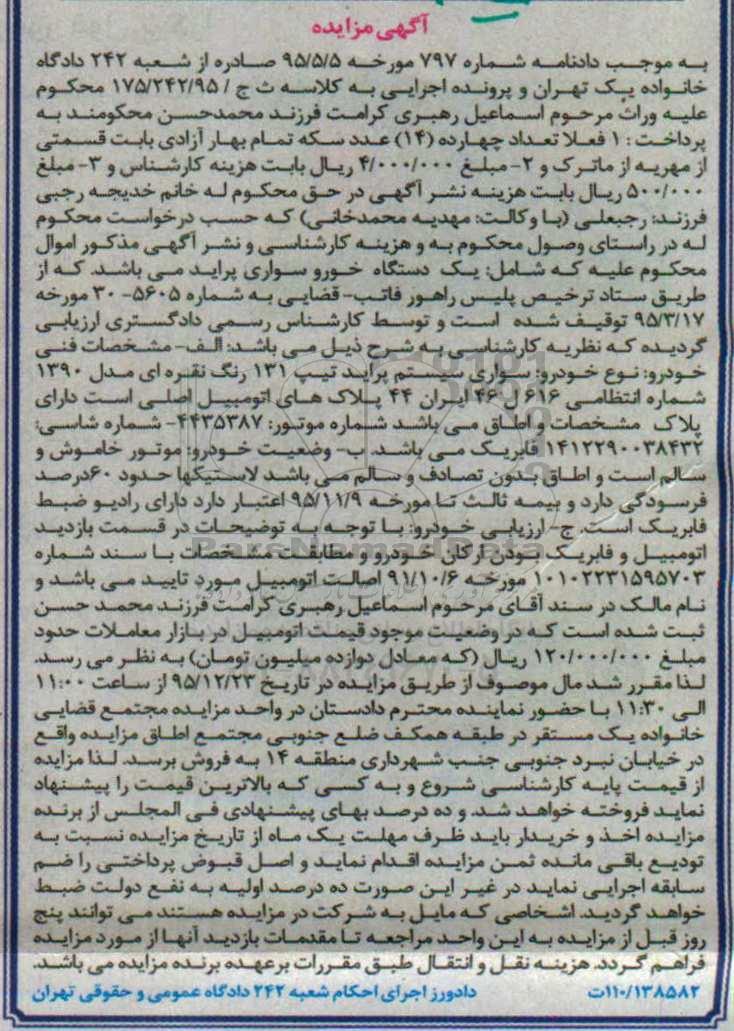 آگهی مزایده
به موجب دادنامه شماره ۷۹۷ مورخه ۹۵/۵/۵ صادره از شعبه ۲۴۲ دادگاه
خانواده یک تهران و پرونده اجرایی به کلاسه ث ج / ۱۷۵/۲۴۲/۹۵ محکوم
علیه وراث مرحوم اسماعیل رهبری کرامت فرزند محمدحسن محکومند به
پرداخت: ۱ فعلا تعداد چهارده (۱۴) عدد سکه تمام بهار آزادی بابت قسمتی
از مهریه از ماترک و ۲- مبلغ ۴/۰۰۰/۰۰۰ ریال بابت هزینه کارشناس و ۳- مبلغ
۵۰۰/۰۰۰ ریال بابت هزینه نشر آگهی در حق محکوم له خانم خدیجه رجبی
فرزند: رجبعلی (با وکالت: مهدیه محمدخانی) که حسب درخواست محکوم
له در راستای وصول محکوم به و هزینه کارشناسی و نشر آگهی مذکور اموال
محکوم علیه که شامل: یک دستگاه خورو سواری پراید می باشد. که از
طریق ستاد ترخیص پلیس راهور فاتب- قضایی به شماره ۵۶۰۵- ۳۰ مورخه
۹۵/۳/۱۷ توقیف شده است و توسط کارشناس رسمی دادگستری ارزیابی
گردیده که نظریه کارشناسی به شرح ذیل می باشد: الف- مشخصات فنی
خودرو: نوع خودرو: سواری سیستم پراید تیپ ۱۳۱ رنگ نقره ای مدل ۱۳۹۰
شماره انتظامی ۶۱۶ ل ۴۶ ایران ۴۴ پلاک های اتومبیل اصلی است دارای
پلاک مشخصات و اطاق می باشد شماره موتور: ۴۴۳۵۳۸۷- شماره شاسی:
۱۴۱۲۲۹۰۰۳۸۴۳۲ فابریک می باشد. ب- وضعیت خودرو: موتور خاموش و
سالم است و اطاق بدون تصادف و سالم می باشد لاستیکها حدود ۶۰درصد
فرسودگی دارد و بیمه ثالث تا مورخه ۹۵/۱۱/۹ اعتبار دارد دارای رادیو ضبط
فابریک است. ج- ارزیابی خودرو: با توجه به توضیحات در قسمت بازدید
اتومبیل و فابریک بودن ارکان خودرو و مطابقت مشخصات با سند شماره
۱۰۱۰۲۲۳۱۵۹۵۷۰۳ مورخه ۹۱/۱۰/۶ اصالت اتومبیل مورد تایید می باشد و
نام مالک در سند آقای مرحوم اسماعیل رهبری کرامت فرزند محمد حسن
ثبت شده است که در وضعیت موجود قیمت اتومبیل در بازار معاملات حدود
مبلغ ۱۲۰/۰۰۰/۰۰۰ ریال (که معادل دوازده میلیون تومان) به نظر می رسد.
لذا مقرر شد مال موصوف از طریق مزایده در تاریخ ۹۵/۱۲/۲۳ از ساعت ۱۱:۰۰
الی ۱۱:۳۰ با حضور نماینده محترم دادستان در واحد مزایده مجتمع قضایی
خانواده یک مستقر در طبقه همکف ضلع جنوبی مجتمع اطاق مزایده واقع
در خیابان نبرد جنوبی جنب شهرداری منطقه ۱۴ به فروش برسد. لذا مزایده
از قیمت پایه کارشناسی شروع و به کسی که بالاترین قیمت را پیشنهاد
نماید فروخته خواهد شد. و ده درصد بهای پیشنهادی فی المجلس از برنده
مزایده اخذ و خریدار باید ظرف مهلت یک ماه از تاریخ مزایده نسبت به
تودیع باقی مانده ثمن مزایده اقدام نماید و اصل قبوض پرداختی را ضم
سابقه اجرایی نماید در غیر این صورت ده درصد اولیه به نفع دولت ضبط
خواهد گردید. اشخاصی که مایل به شرکت در مزایده هستند می توانند پنج
روز قبل از مزایده به این واحد مراجعه تا مقدمات بازدید آنها از مورد مزایده
فراهم گردد. هزینه نقل و انتقال طبق مقررات برعهده برنده مزایده می باشد.
۱۱۰/۱۳۸۵۸۲ت دادورز اجرای احکام شعبه ۲۴۲ دادگاه عمومی و حقوقی تهران
ParsNamadData